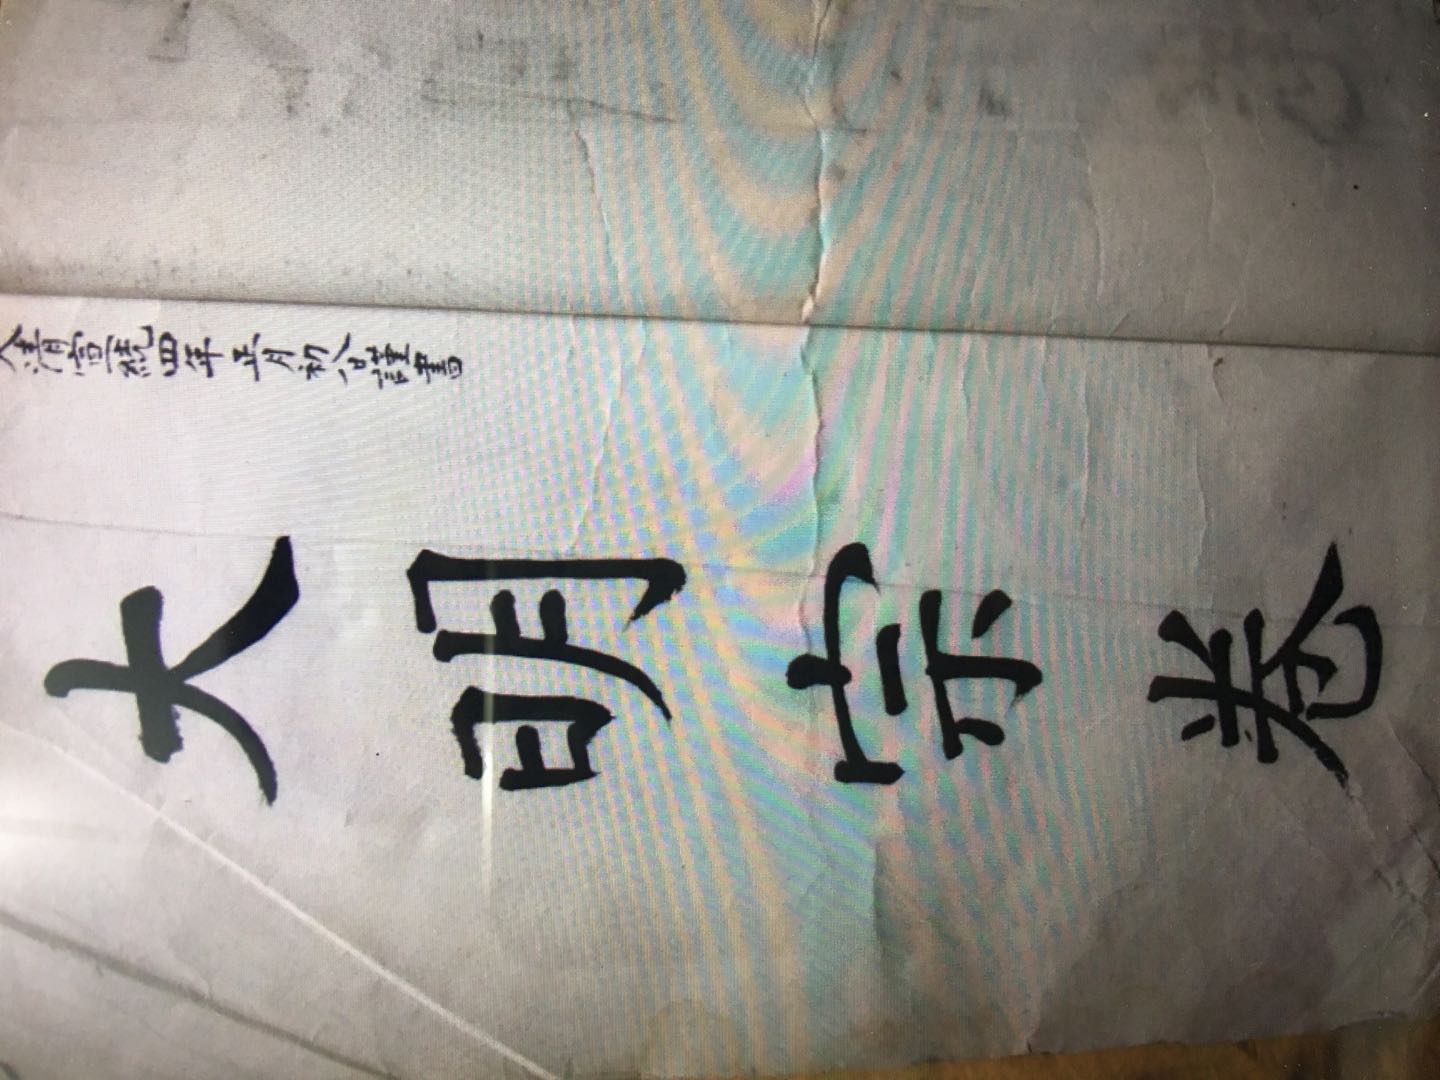 大清宣統四年正月初八日謹書
大明宗卷